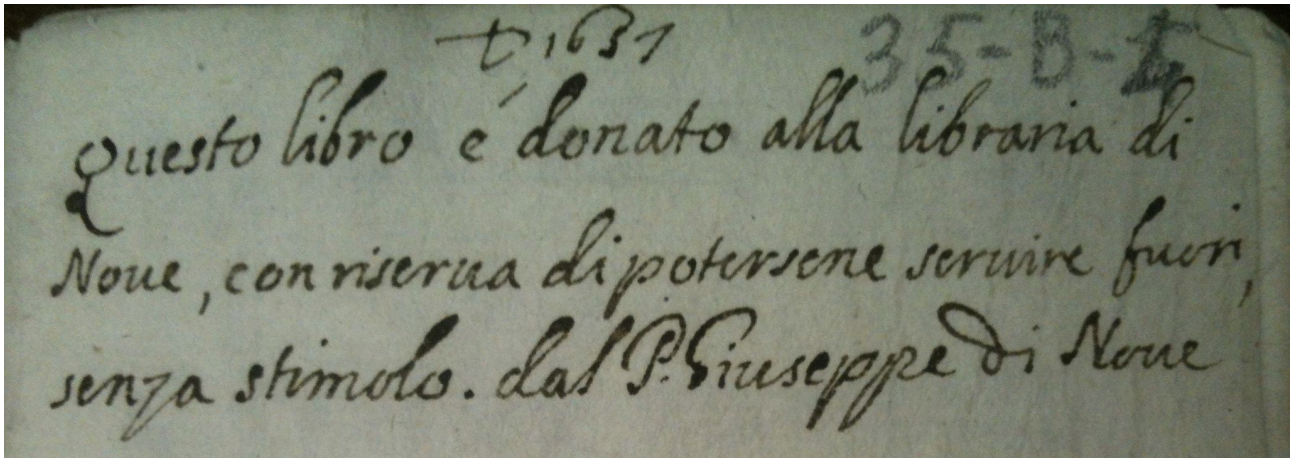 ✝ 1637 35-B-
Questo libro é donato alla libraria di
Noue, con riserua di potersene seruire fuori,
senza stimolo. dal P. Giuseppe di Noue